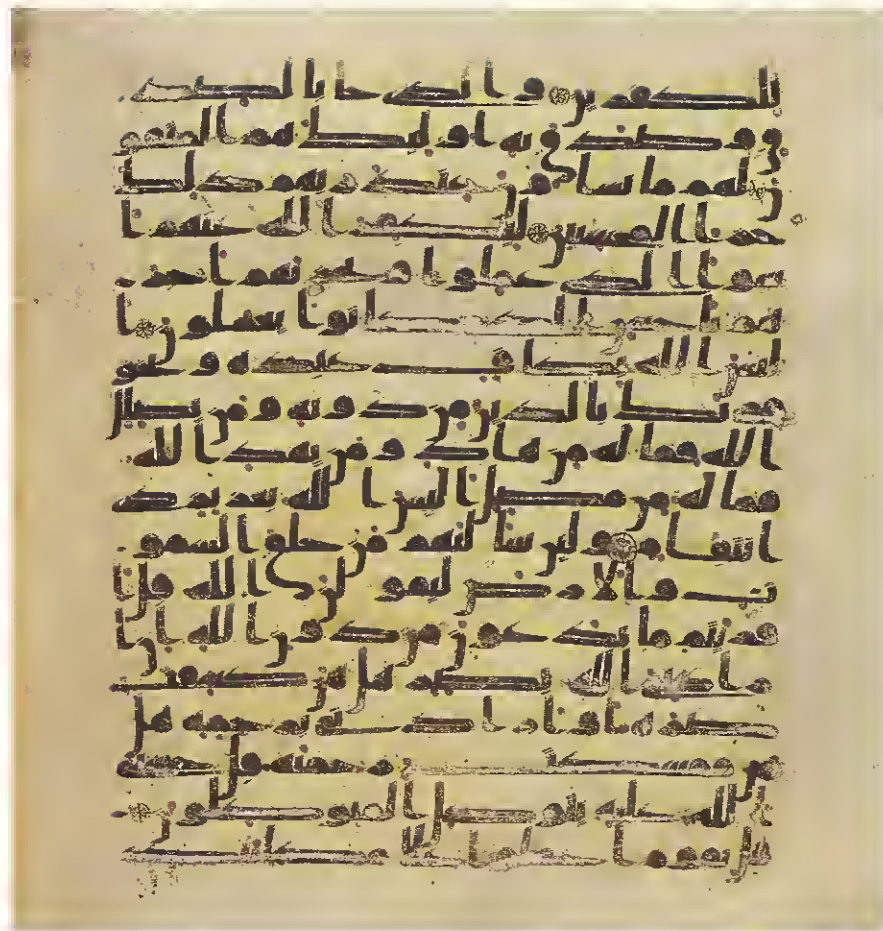 للكفرين والذي جا بالصد
ق وصدق به اوليك هم المتقو
ن لهم ما يشاون عند ربهم ذلك
جزا المحسنين ليكفر الله عنهم ا
سوا الذي عملوا ويجزيهم اجر
هم باحسن الذي كانوا يعملون ا
ليس الله بكاف عبده ويخو
فونك بالذين من دونه ومن يضلل
الله فما له من هاد ومن يهد الله
فما له من مضل اليس الله بعزيز ذي
انتقام ولين سالتهم من خلق السمو
ت والارض ليقولن الله قل ا
فريتم ما تدعون من دون الله ان ا
رادني الله بضر هل هن كشفت
ضره او ارادني برحمة هل
هن ممسكت رحمته قل حسبي
الله عليه يتوكل المتوكلون
قل يقوم اعملوا على